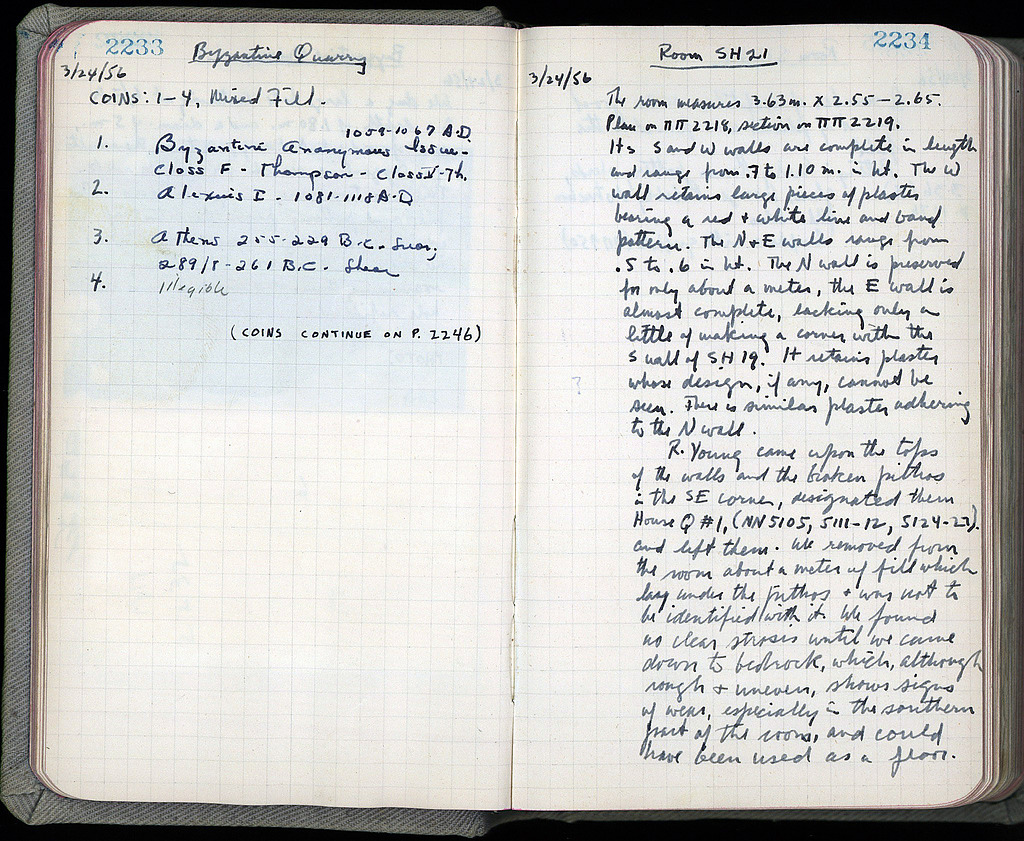 2233
Byzantine Quarry
3/24/56
COINS: 1-4, Mixed Fill.
1059-1067 A.D.
1. Byzantine Anonymous Issue-
Class F - Thompson - Class - 7th.
2. Alexius I - 1081-1118 A.D
3. Athens 255-229 B.C. Svor,
289/8-261 B.C. Shear
4. Illegible
(COINS CONTINUE ON P. 2246)
2234
Room SH21
3/24/56
The room measures 3.63m. x 2.55-2.65.
Plan on ΠΠ 2218, section on ΠΠ 2219.
Its S and W walls are complete in length
and range from .7 to 1.10 m. in ht. The W
wall retains large pieces of plaster
bearing a red + white line and band
pattern. The N + E walls range from
.5 to .6 in ht. The N wall is preserved
for only about a meter, the E wall is
almost complete, lacking only a
little of making a corner with the
S wall of SH 19. It retains plaster
whose design, if any, cannot be
?
seen. There is similar plaster adhering
to the N wall.
R. Young came upon the tops
of the walls and the broken pithos
in the SE corner, designated them
House Q #1, (NN 5105, 5111-12, 5124-27).
and left them. We removed from
the room about a meter of fill which
lay under the pithos + was not to
be identified with it. We found
no clear strosis until we came
down to bedrock, which, although
rough + uneven, shows signs
of wear, especially in the southern
part of the room, and could
have been used as a floor.